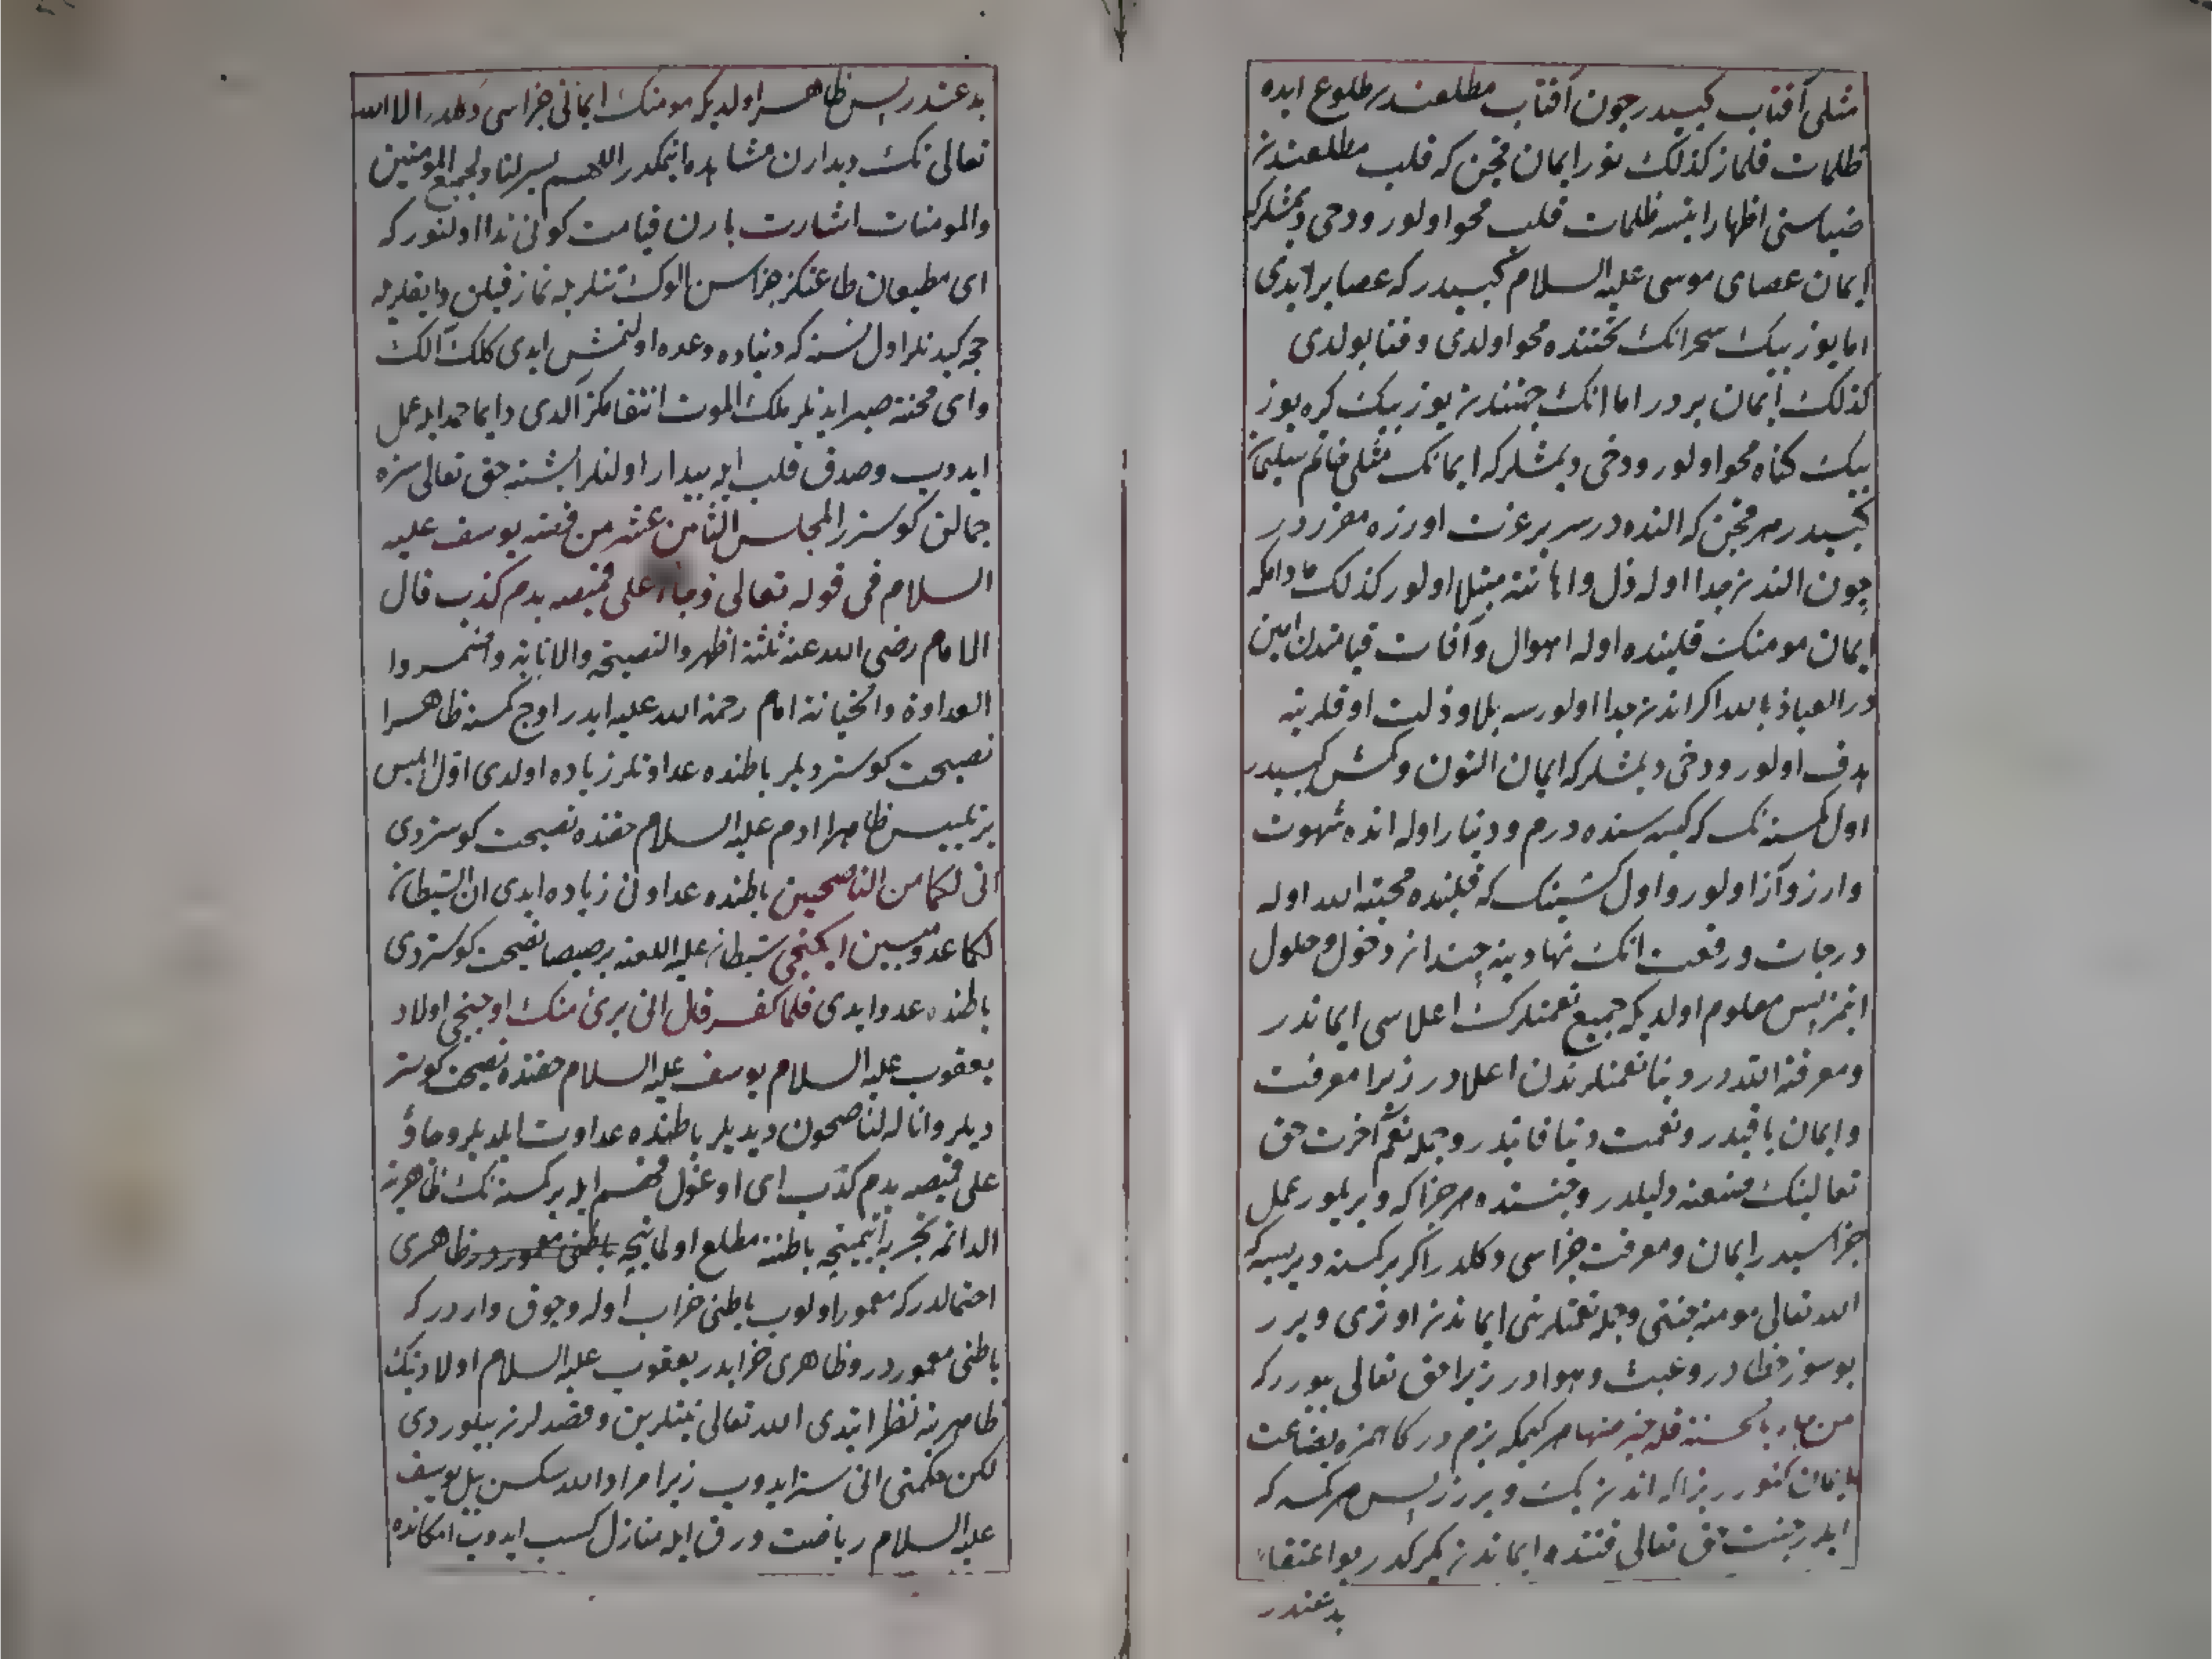 مثلی آفتاب کبیدر چون آفتاب مطلعندن طلوع ایده
ظلمات قلماز کذلک نور ایمان قچن که قلب مطلعندن
ضیاسنی اظهار ایتسه ظلمات قلب محو اولور ودخی دیمشلر که
ایمان عصای موسی علیه السلام کبیدر که عصا بر ایدی
اما یوز بیک سحر انک تحتنده محو اولدی و فنا بولدی
کذلک ایمان بردر اما انک جنبندن یوز بیک کره یوز
بیک کناه محو اولور ودخی دیمشلر که ایمانک مثلی خاتم سلیمان
کبیدر هر قچن که النده در سریر عزت اوزره معززدر
چون الندن جدا اوله ذل واهانته مبتلا اولور کذلک مادامکه
ایمان مومنک قلبنده اوله اهوال وآفات قیامتدن امین
در العیاذ بالله اکر اندن جدا اولورسه بلا وذلت اوقلرینه
هدف اولور ودخی دیمشلر که ایمان التون وکمش کبیدر
اول کمسنه نک که کیسه سنده درم ودینار اوله انده شهوت
وارزو وآز اولور واول کشینک که قلبنده محبة الله اوله
درجات ورفعت انک نهادینه چندان دخول وحلول
ایتمز پس معلوم اولدیکه جمیع نعمتلرک اعلاسی ایماندر
ومعرفة الله در ودنیا نعمتلرندن اعلادر زیرا معرفت
وایمان باقیدر ونعمت دنیا فانیدر وجمله نعم آخرت حق
تعالینک صنعنه دلیلدر وجنتده هر جزا که ویریلور عمل
جزاسیدر ایمان ومعرفت جزاسی دکلدر اکر بر کمسنه دیرسه که
الله تعالی مومنه جنتی وجمله نعمتلرینی ایماندن اوتری ویرر
بو سوز خطادر وعبث وهوادر زیرا حق تعالی بیوررکه
من جاء بالحسنة فله خیر منها هر کیمکه بزم درکاهمزه بضاعت
ایمان کتورر بز اکه اندن یک ویررز پس هر کمسه که
ایلدر جنت حق تعالی قتنده ایماندن یکرکدر بو اعتقاد
بدعتدر
بدعتدر پس ظاهر اولدیکه مومنک ایمانی جزاسی دکلدر الا الله
تعالی نک دیدارن مشاهده ایتمکدر اللهم یسر لنا ولجمیع المومنین
والمومنات اشارت یارن قیامت کونی ندا اولنور که
ای مطیعان طاعتکز جزاسن الوک تنلرله نماز قیلن وایقلریله
حجه کیدنلر اول نسنه که دنیاده وعده اولنمش ایدی کلک آلک
وای محنته صبر ایدنلر ملک الموت انتقامکز آلدی دایما حمدایله عمل
ایدوب وصدق قلب ایله بیدار اولنلر اشته حق تعالی سزه
جمالن کوسترر المجلس الثامن عشر من قصه یوسف علیه
السلام فی قوله تعالی وجاء علی قمیصه بدم کذب قال
الامام رضی الله عنه ثلثة اظهروا النصیحة والامانة واضمروا
العداوة والخیانة امام رحمة الله علیه ایدر اوچ کمسنه ظاهرا
نصیحت کوستردیلر باطنده عداوتلر زیاده اولدی اول ابلیس
پر تلبیس ظاهرا ادم علیه السلام حقنده نصیحت کوستردی
انی لکما من الناصحین باطنده عداوتی زیاده ایدی ان الشیطان
لکما عدو مبین ایکنجی شیطان علیه اللعنه برصیصا نصیحت کوستردی
باطنده عدو ایدی فلما کفر قال انی برئ منک اوچنجی اولاد
یعقوب علیه السلام یوسف علیه السلام حقنده نصیحت کوستر
دیلر وانا له لناصحون دیدیلر باطنده عداوت ایلدیلر وجاؤ
علی قمیصه بدم کذب ای اوغول فهم ایله بر کمسنه نک ظاهرنه
الدانمه تجربه ایتمینجه باطننه مطلع اولماینجه باطنی معموردر ظاهری
احتمالدر که معمور اولوب باطنی خراب اوله وچوق واردر که
باطنی معموردر وظاهری خرابدر یعقوب علیه السلام اولادینک
ظاهرینه نظر ایتدی الله تعالی نیتلرین وقصدلرن بیلوردی
لکن حکمتی انی ستر ایدوب زیرا مراد الله سکسن ییل یوسف
علیه السلام ریاضت ورق ایله منازل کسب ایدوب امکانده